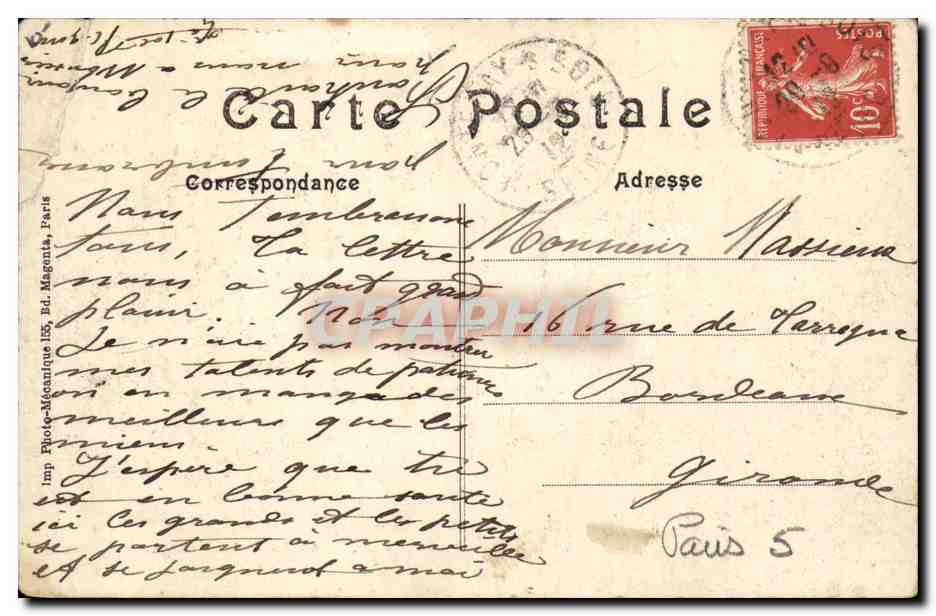 Carte Postale
Correspondance
Adresse
Nous t'embrassons
tous, Ta lettre
nous à fait grand
plaisir. Non
Je n'aie pas montrer
mes talents de patissier
on en mange des
meilleurs que les
miens.
J'espère que tu
est en bonne santé
ici les grands et les petits
se portent à merveille
et se joignent a moi
pour t'embrasser
Monsieur Massieux
16 rue de Tarregua
Bordeaux
Gironde
Paris 5
Imp Photo-Mécanique 155, Bd. Magenta, Paris
REPUBLIQUE FRANÇAISE
POSTES
10c
CPAPHIL